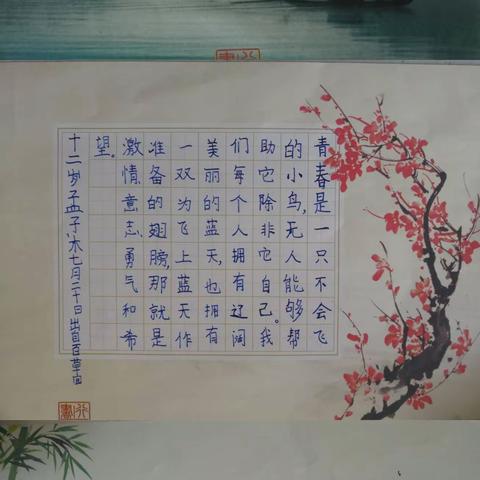 青春是一只不会飞
的小鸟,无人能够帮
助它除非它自己。我
们每个人拥有辽阔
美丽的蓝天,也拥有
一双为飞上蓝天作
准备的翅膀,那就是
激情、意志、勇气和希
望。
十二岁孟子沐七月二十日出自百草